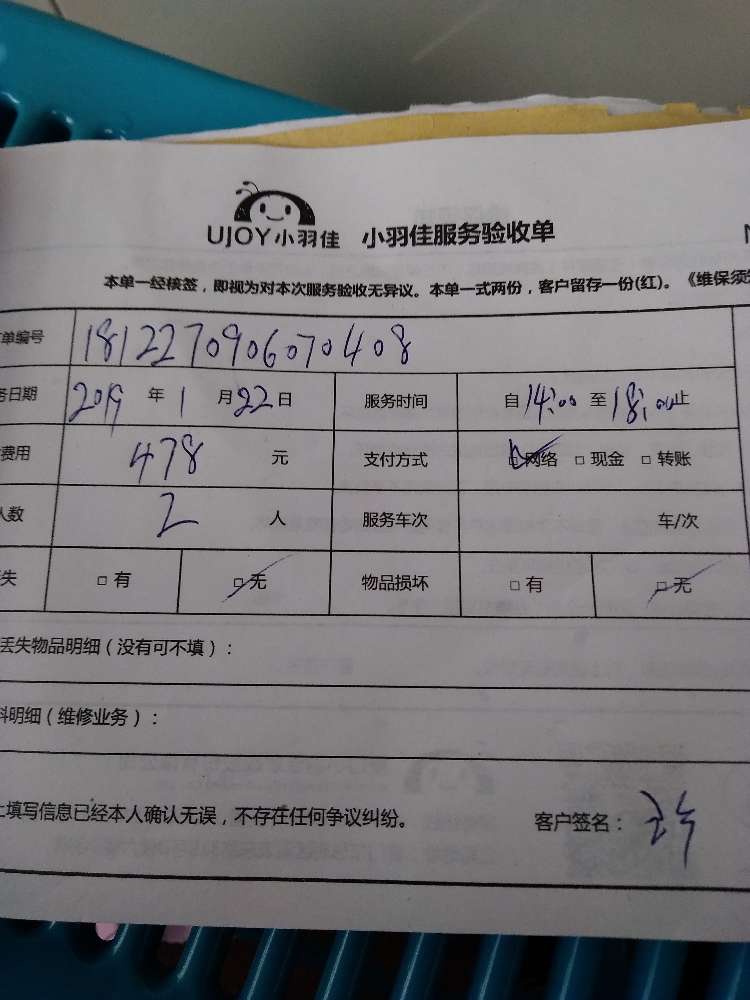 UJOY小羽佳 小羽佳服务验收单
本单一经核签，即视为对本次服务验收无异议。本单一式两份，客户留存一份(红)。《维保须知
单编号 1812270906070408
务日期 2019 年 1 月 22 日 服务时间 自 14:00 至 18:00 止
费用 478 元 支付方式 □网络 □ 现金 □ 转账
人数 2 人 服务车次 车/次
失 □ 有 □ 无 物品损坏 □ 有 □ 无
丢失物品明细（没有可不填）：
料明细（维修业务）：
上填写信息已经本人确认无误，不存在任何争议纠纷。 客户签名：